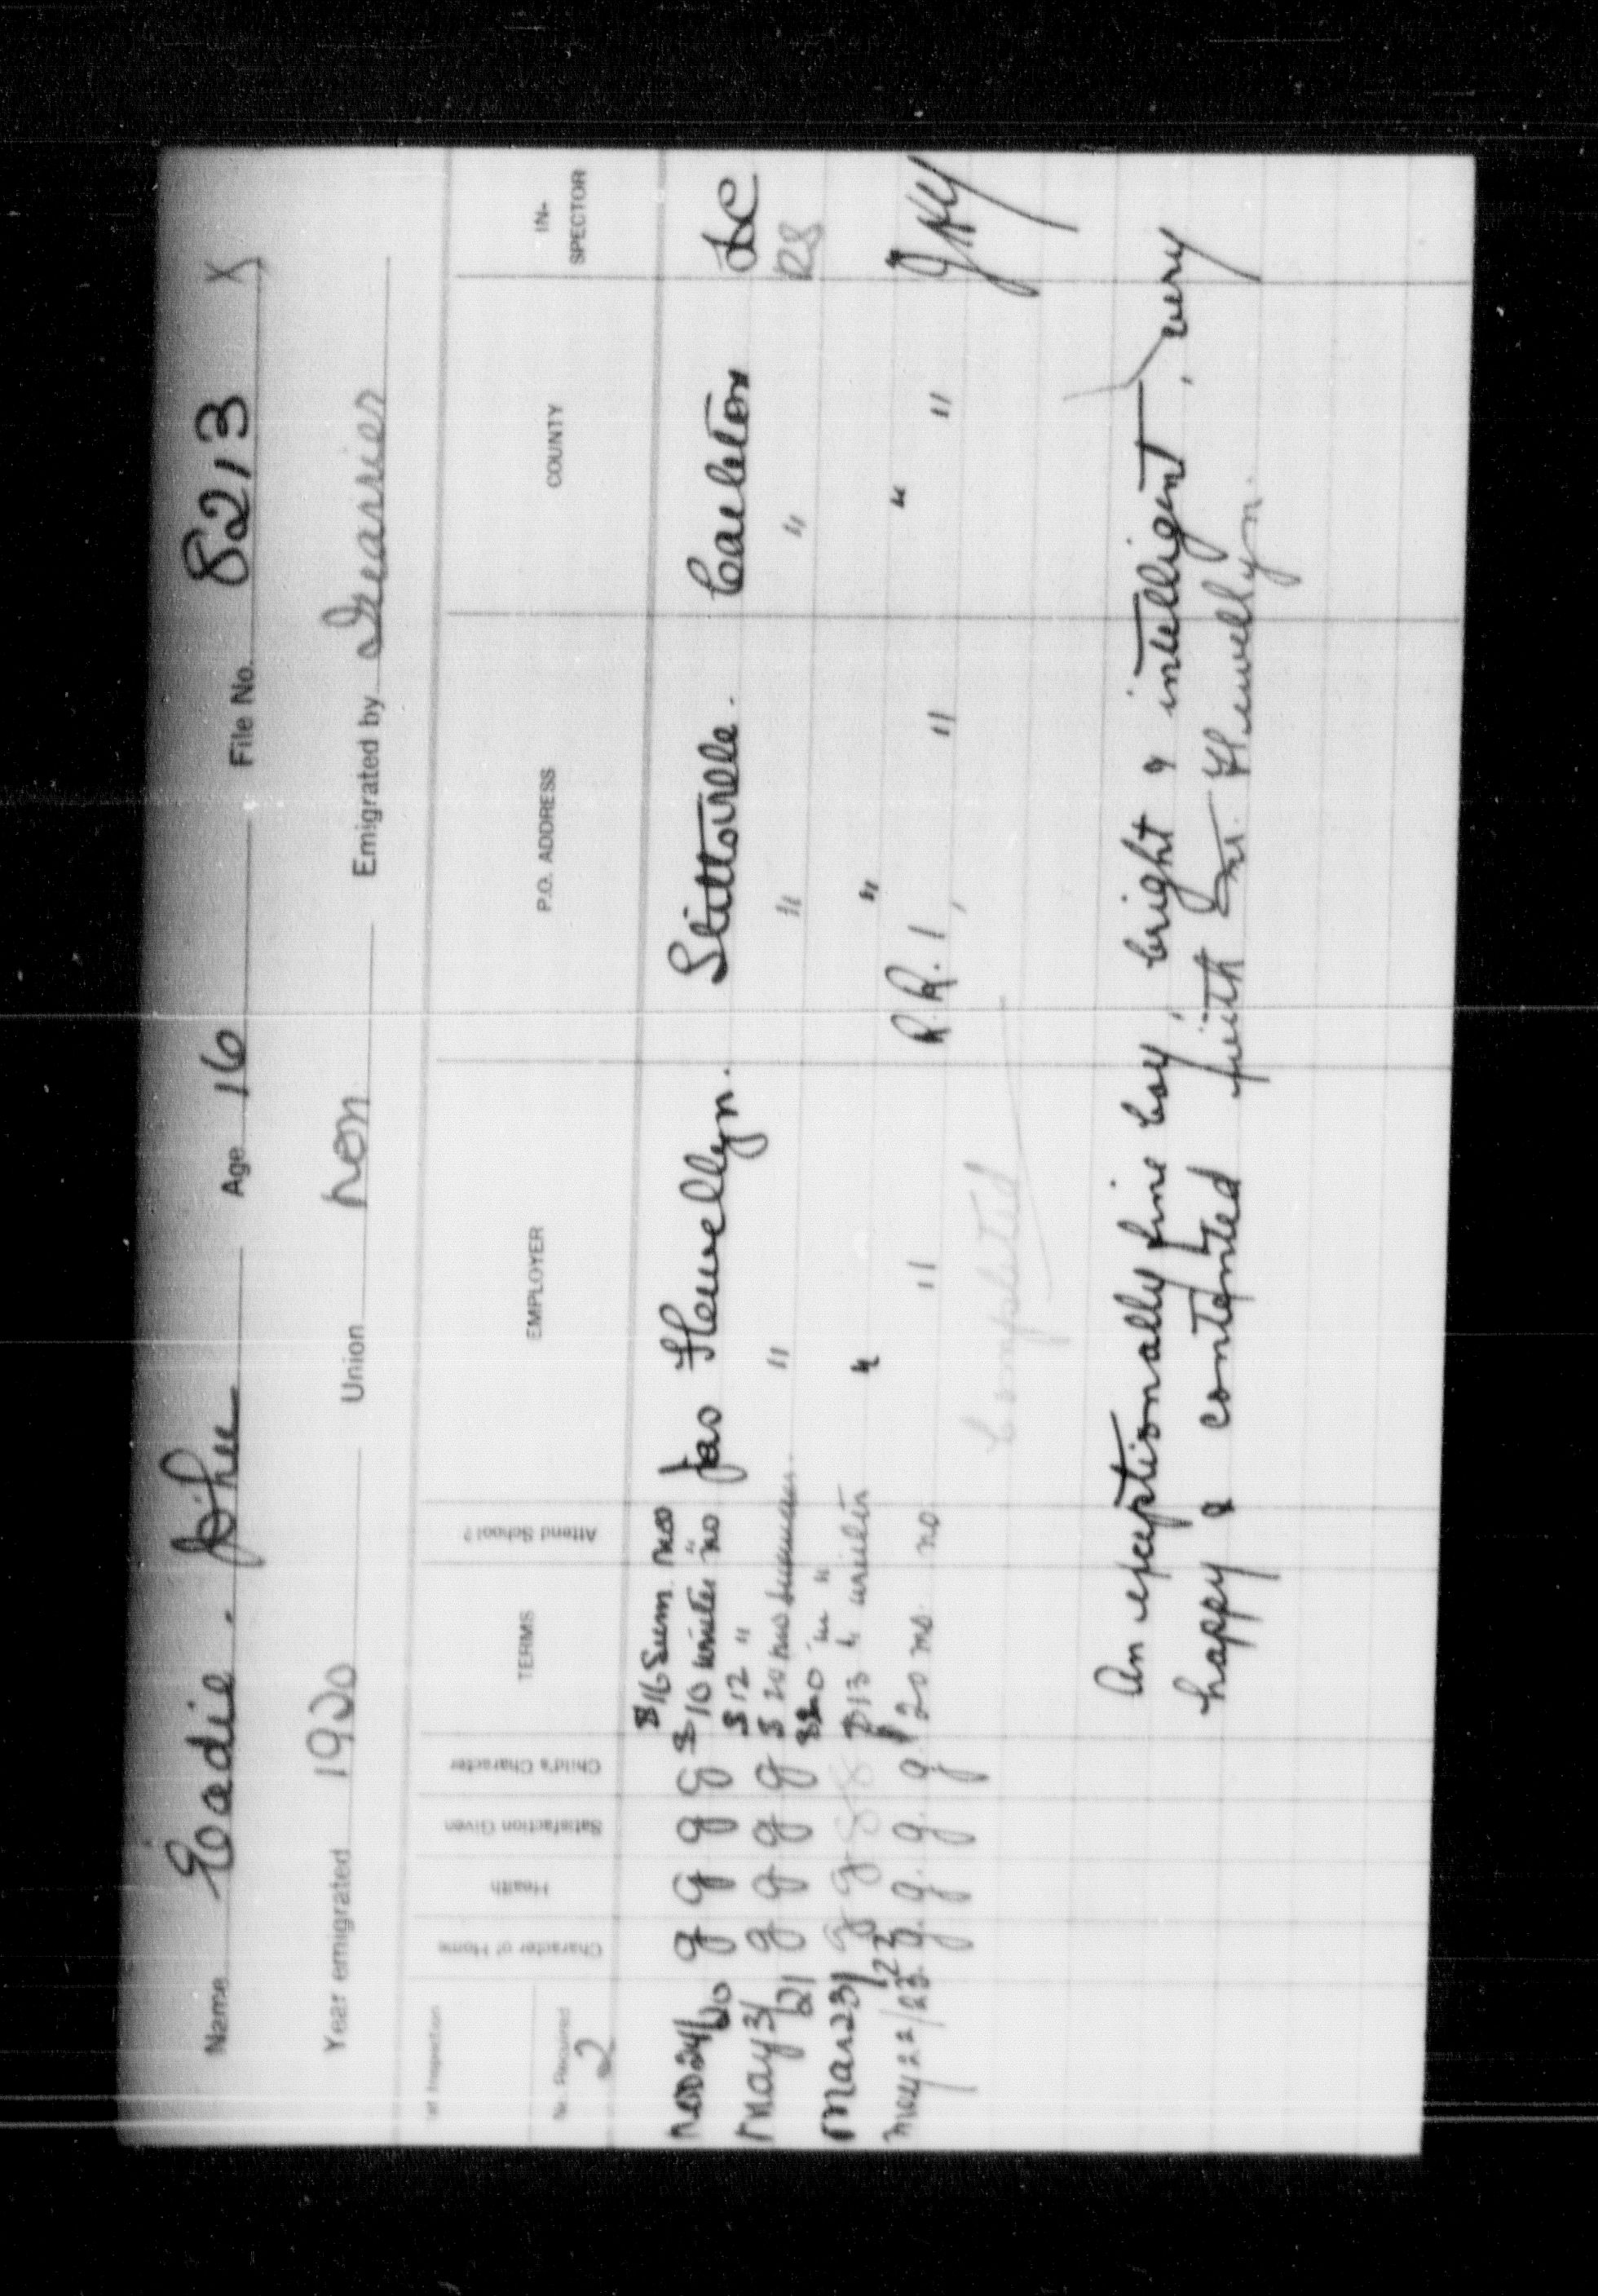 Name Eadie. John Age 16 File No. 8213 X
Year emigrated 1920 Union non Emigrated by Quarrier
of Inspection
No. Required 2 Character of Home Health Satisfaction Given Child's Character TERMS Attend School? EMPLOYER P.O. ADDRESS COUNTY IN-SPECTOR
$16 Summ no
Nov 24/20 g g g g $10 winter no Jas Flewellyn. Stittsville. Carleton
$12 "
May 31/21 g g g g $20 mo summer. " " " RS
$20 in "
Mar 23/22 g g g g $13 " winter " " "
May 22/23 g. g. g. g $20 mo. no " R.R.1, " "
Completed
An exceptionally fine boy, bright & intelligent, very
happy & contented with Mr. Flewellyn.